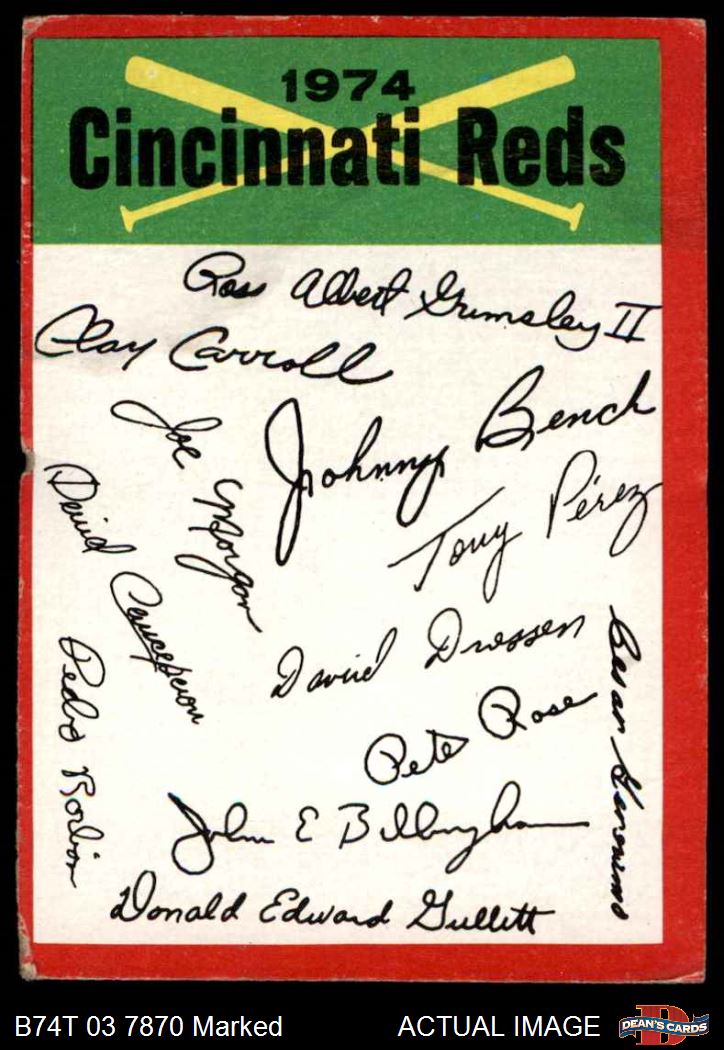 1974
Cincinnati Reds
Ross Albert Grimsley II
Clay Carroll
Johnny Bench
Joe Morgan
Tony Pérez
David Concepcion
David Driessen
Cesar Geronimo
Pedro Borbon
Pete Rose
John E Billingham
Donald Edward Gullett
B74T 03 7870 Marked
ACTUAL IMAGE
D
DEAN'S CARDS